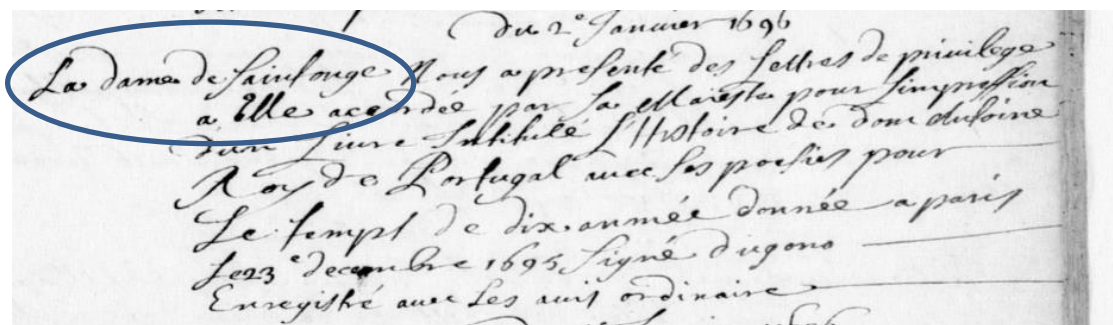 du 2e Janvier 1696
La dame de Sainfonge Nous a presenté des Lettres de privilege
a Elle accordée par sa Maiesté pour Limpression
dun Livre Intitulé L'Histoire de dom Antoine
Roy de Portugal avec ses poesies pour
Le temps de dix année donnée a paris
Le 23e decembre 1695 signé dugono
Enregistré avec Les avis ordinaire